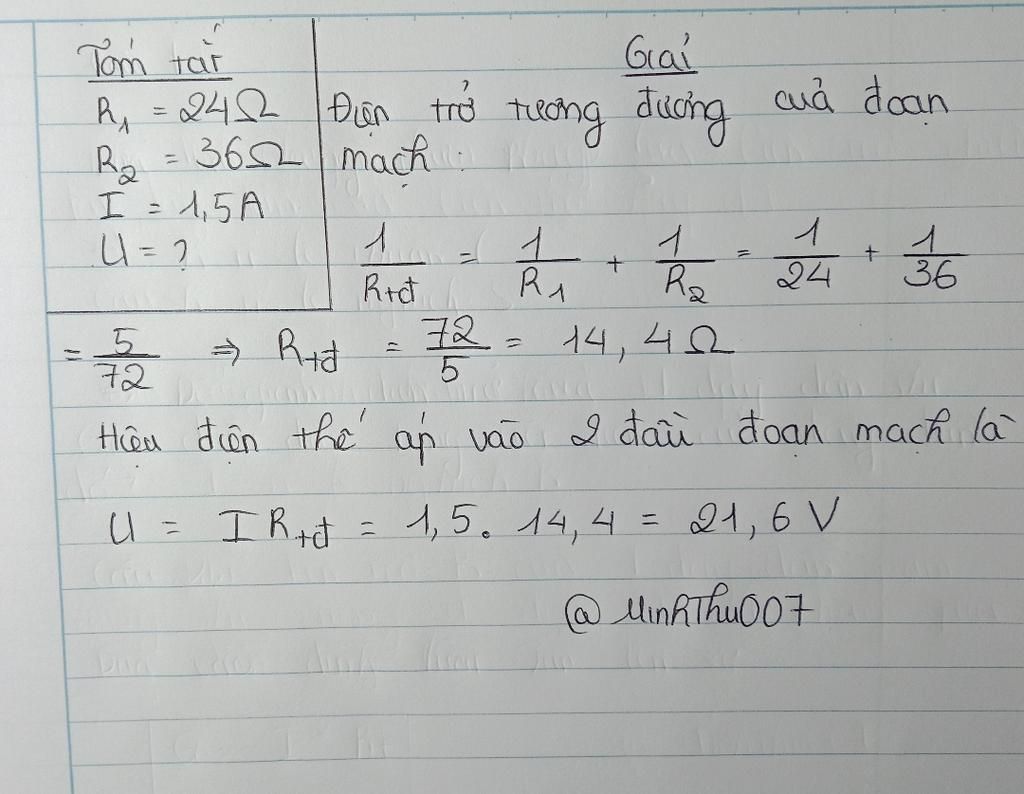 Tóm tắt
R₁ = 24Ω
R₂ = 36Ω
I = 1,5A
U = ?
Giải
Điện trở tương đương của đoạn
mạch:
1/Rtđ = 1/R₁ + 1/R₂ = 1/24 + 1/36
= 5/72 ⇒ Rtđ = 72/5 = 14,4Ω
Hiệu điện thế áp vào 2 đầu đoạn mạch là
U = I Rtđ = 1,5. 14,4 = 21,6 V
@MinhThu007